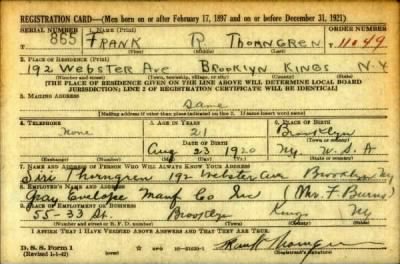 REGISTRATION CARD—(Men born on or after February 17, 1897 and on or before December 31, 1921)
SERIAL NUMBER 1. NAME (Print) ORDER NUMBER
865 FRANK R THORNGREN 11049
(First) (Middle) (Last)
2. PLACE OF RESIDENCE (Print)
192 Webster Ave Brooklyn Kings N.Y
(Number and street) (Town, township, village, or city) (County) (State)
[THE PLACE OF RESIDENCE GIVEN ON THE LINE ABOVE WILL DETERMINE LOCAL BOARD
JURISDICTION; LINE 2 OF REGISTRATION CERTIFICATE WILL BE IDENTICAL]
3. MAILING ADDRESS
Same
[Mailing address if other than place indicated on line 2. If same insert word same]
4. TELEPHONE 5. AGE IN YEARS 6. PLACE OF BIRTH
None 21 Brooklyn
DATE OF BIRTH (Town or county)
Aug 23 1920 Ny. U.S.A
(Exchange) (Number) (Mo.) (Day) (Yr.) (State or country)
7. NAME AND ADDRESS OF PERSON WHO WILL ALWAYS KNOW YOUR ADDRESS
Siri Thorngren 192 Webster Ave Brooklyn Ny
8. EMPLOYER'S NAME AND ADDRESS
Gray Envelope Manf Co Inc (Mr. F Burns)
9. PLACE OF EMPLOYMENT OR BUSINESS
55-33 St. Brooklyn Kings Ny
(Number and street or R. F. D. number) (Town) (County) (State)
I AFFIRM THAT I HAVE VERIFIED ABOVE ANSWERS AND THAT THEY ARE TRUE.
D. S. S. Form 1
(Revised 1-1-42) Frank Thorngren